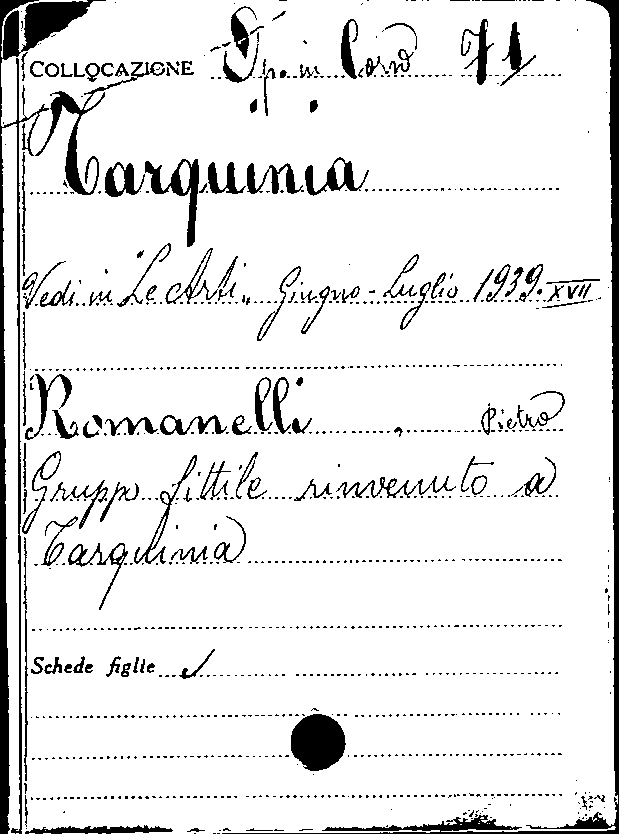 COLLOCAZIONE Op. in Corso 71
Tarquinia
Vedi in "Le Arti" Giugno-Luglio 1939.XVII
Romanelli, Pietro
Gruppo fittile rinvenuto a
Tarquinia
Schede figlie